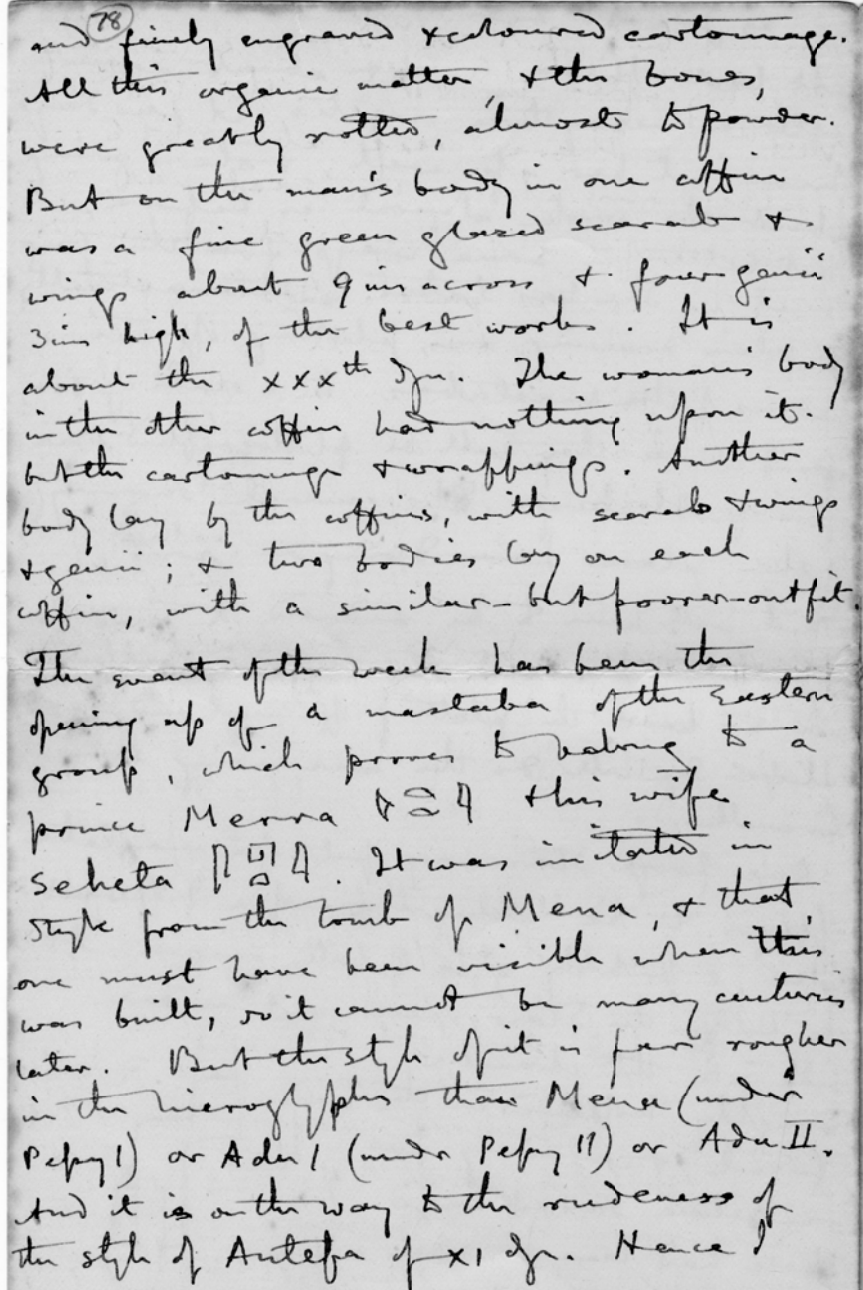 78
and finely engraved & coloured cartonnage.
All this organic matter, & the bones,
were greatly rotted, almost to powder.
But on the man's body in one coffin
was a fine green glazed scarab &
wings about 9 ins across & four genii
3 ins high, of the best work. It is
about the XXXth Dyn. The woman's body
in the other coffin had nothing upon it.
but the cartonnage & wrappings. Another
body lay by the coffins, with scarab & wings
& genii; & two bodies lay on each
coffin, with a similar - but poorer - outfit.
The event of the week has been the
opening up of a mastaba of the Eastern
group, which proves to belong to a
prince Merra & his wife
Sebeta. It was imitated in
style from the tomb of Mena, & that
one must have been visible when this
was built, so it cannot be many centuries
later. But the style of it is far rougher
in the hieroglyphs than Mena (under
Pepy I) or Adu I (under Pepy II) or Adu II.
And it is on the way to the rudeness of
the style of Antefa of XI Dyn. Hence I